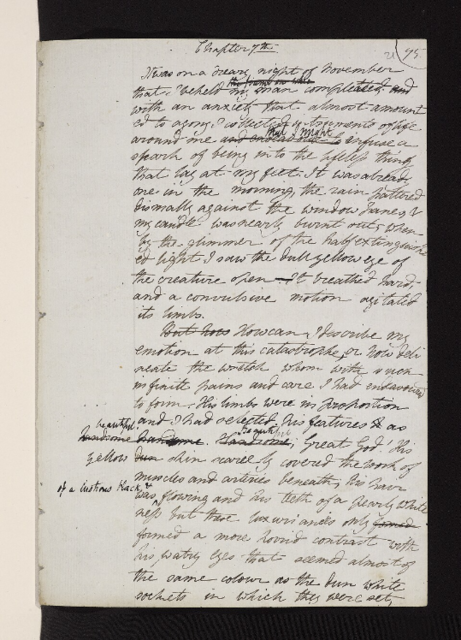 Chapter 7th
75
It was on a dreary night of November
the frame on which
that I beheld my man compleated and
with an anxiety that almost amount
ed to agony I collected instruments of life
that I might
around me and endeavour to infuse a
spark of being into the lifeless thing
that lay at my feet. It was already
one in the morning, the rain pattered
dismally against the window panes, &
my candle was nearly burnt out, when
by the glimmer of the half extinguish
ed light I saw the dull yellow eye of
the creature open — It breathed hard,
and a convulsive motion agitated
its limbs.
But how How can I describe my
emotion at this catastrophe; or how deli
neate the wretch whom with such
infinite pains and care I had endeavoured
to form. His limbs were in proportion
and I had selected his features & as
beautiful
handsome handsome. Handsome; Great God! His
yellow dun skin scarcely covered the work of
muscles and arteries beneath; his hair
of a lustrous black &
was flowing and his teeth of a pearly white
ness but these luxuriances only formed
formed a more horrid contrast with
his watry eyes that seemed almost of
the same colour as the dun white
sockets in which they were set,